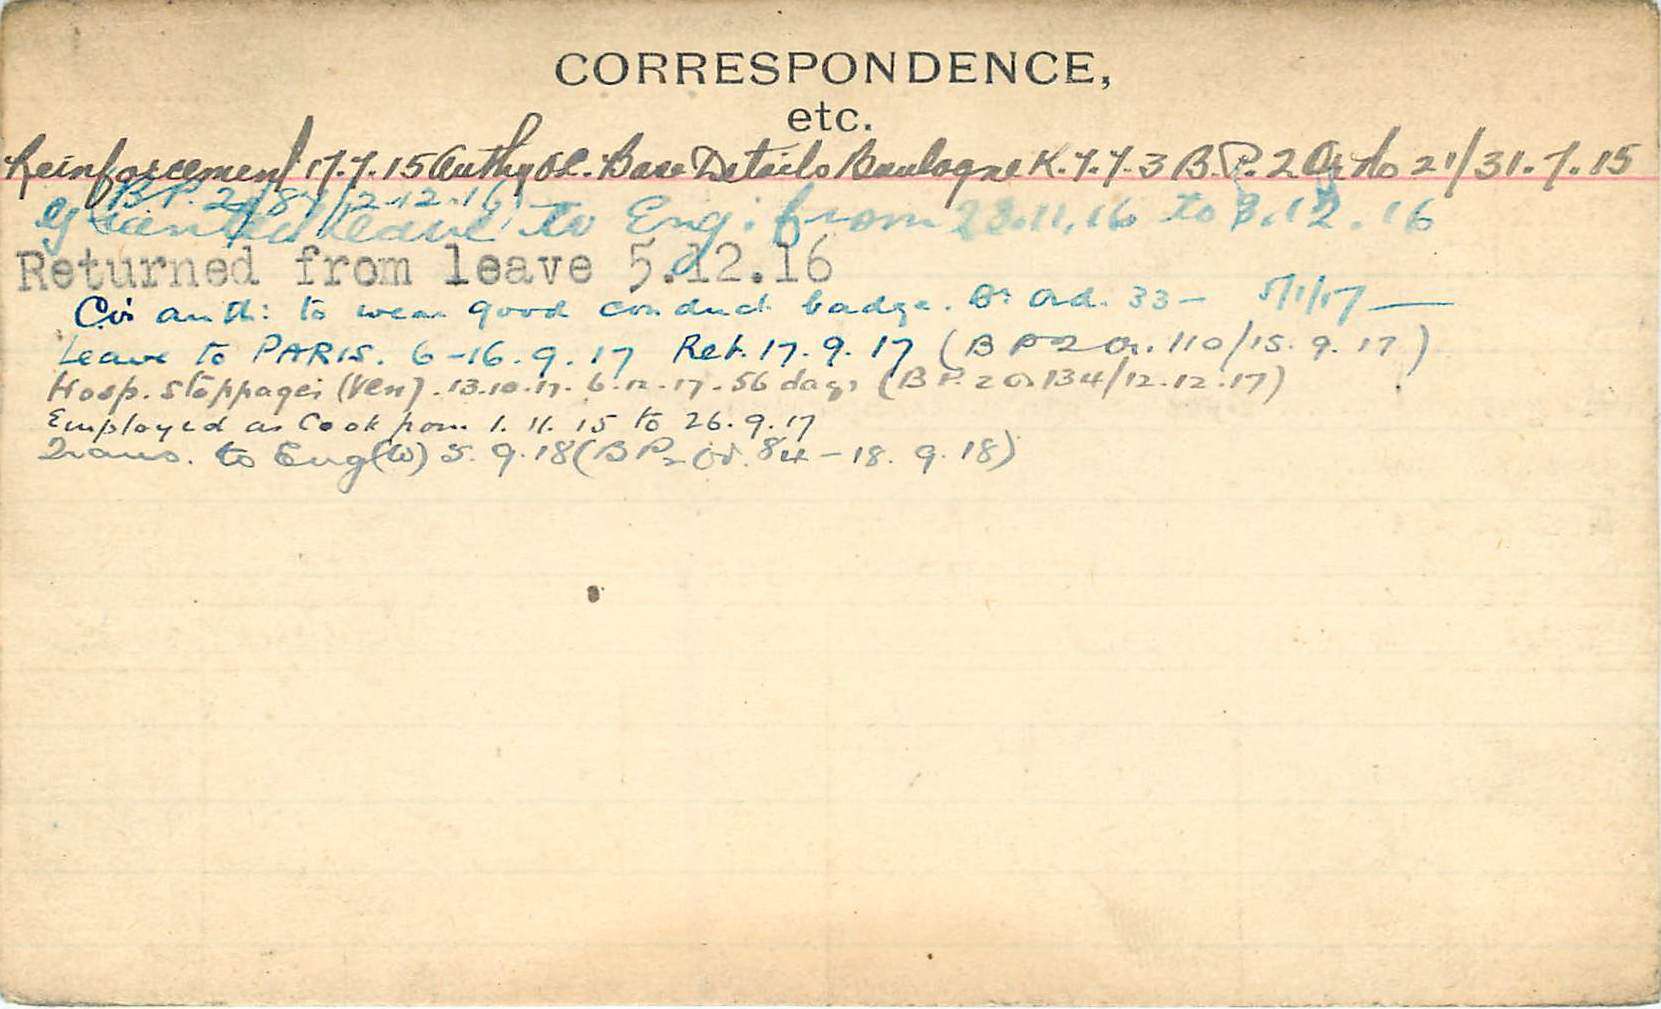 CORRESPONDENCE,
etc.
Reinforcement 17.7.15 Authy O.C. Base Details Boulogne K.7.7.3 B.P.2 Or No 21/31.7.15
B.P. 2/87/2.12.16
Granted leave to Eng: from 23.11.16 to 3.12.16
Returned from leave 5.12.16
auth: to wear good conduct badge. Bn Ord. 33 - 5/1/17 —
Leave to PARIS. 6-16.9.17 Ret. 17.9.17 (B P 2 Or. 110/15.9.17)
Hosp. Stoppages (Ven). 13.10.17. 6.12.17. 56 days (B P. 2 Or 134/12.12.17)
Employed as Cook from 1.11.15 to 26.9.17
Trans. to Eng (W) 5.9.18 (B P2 Or. 84 - 18.9.18)